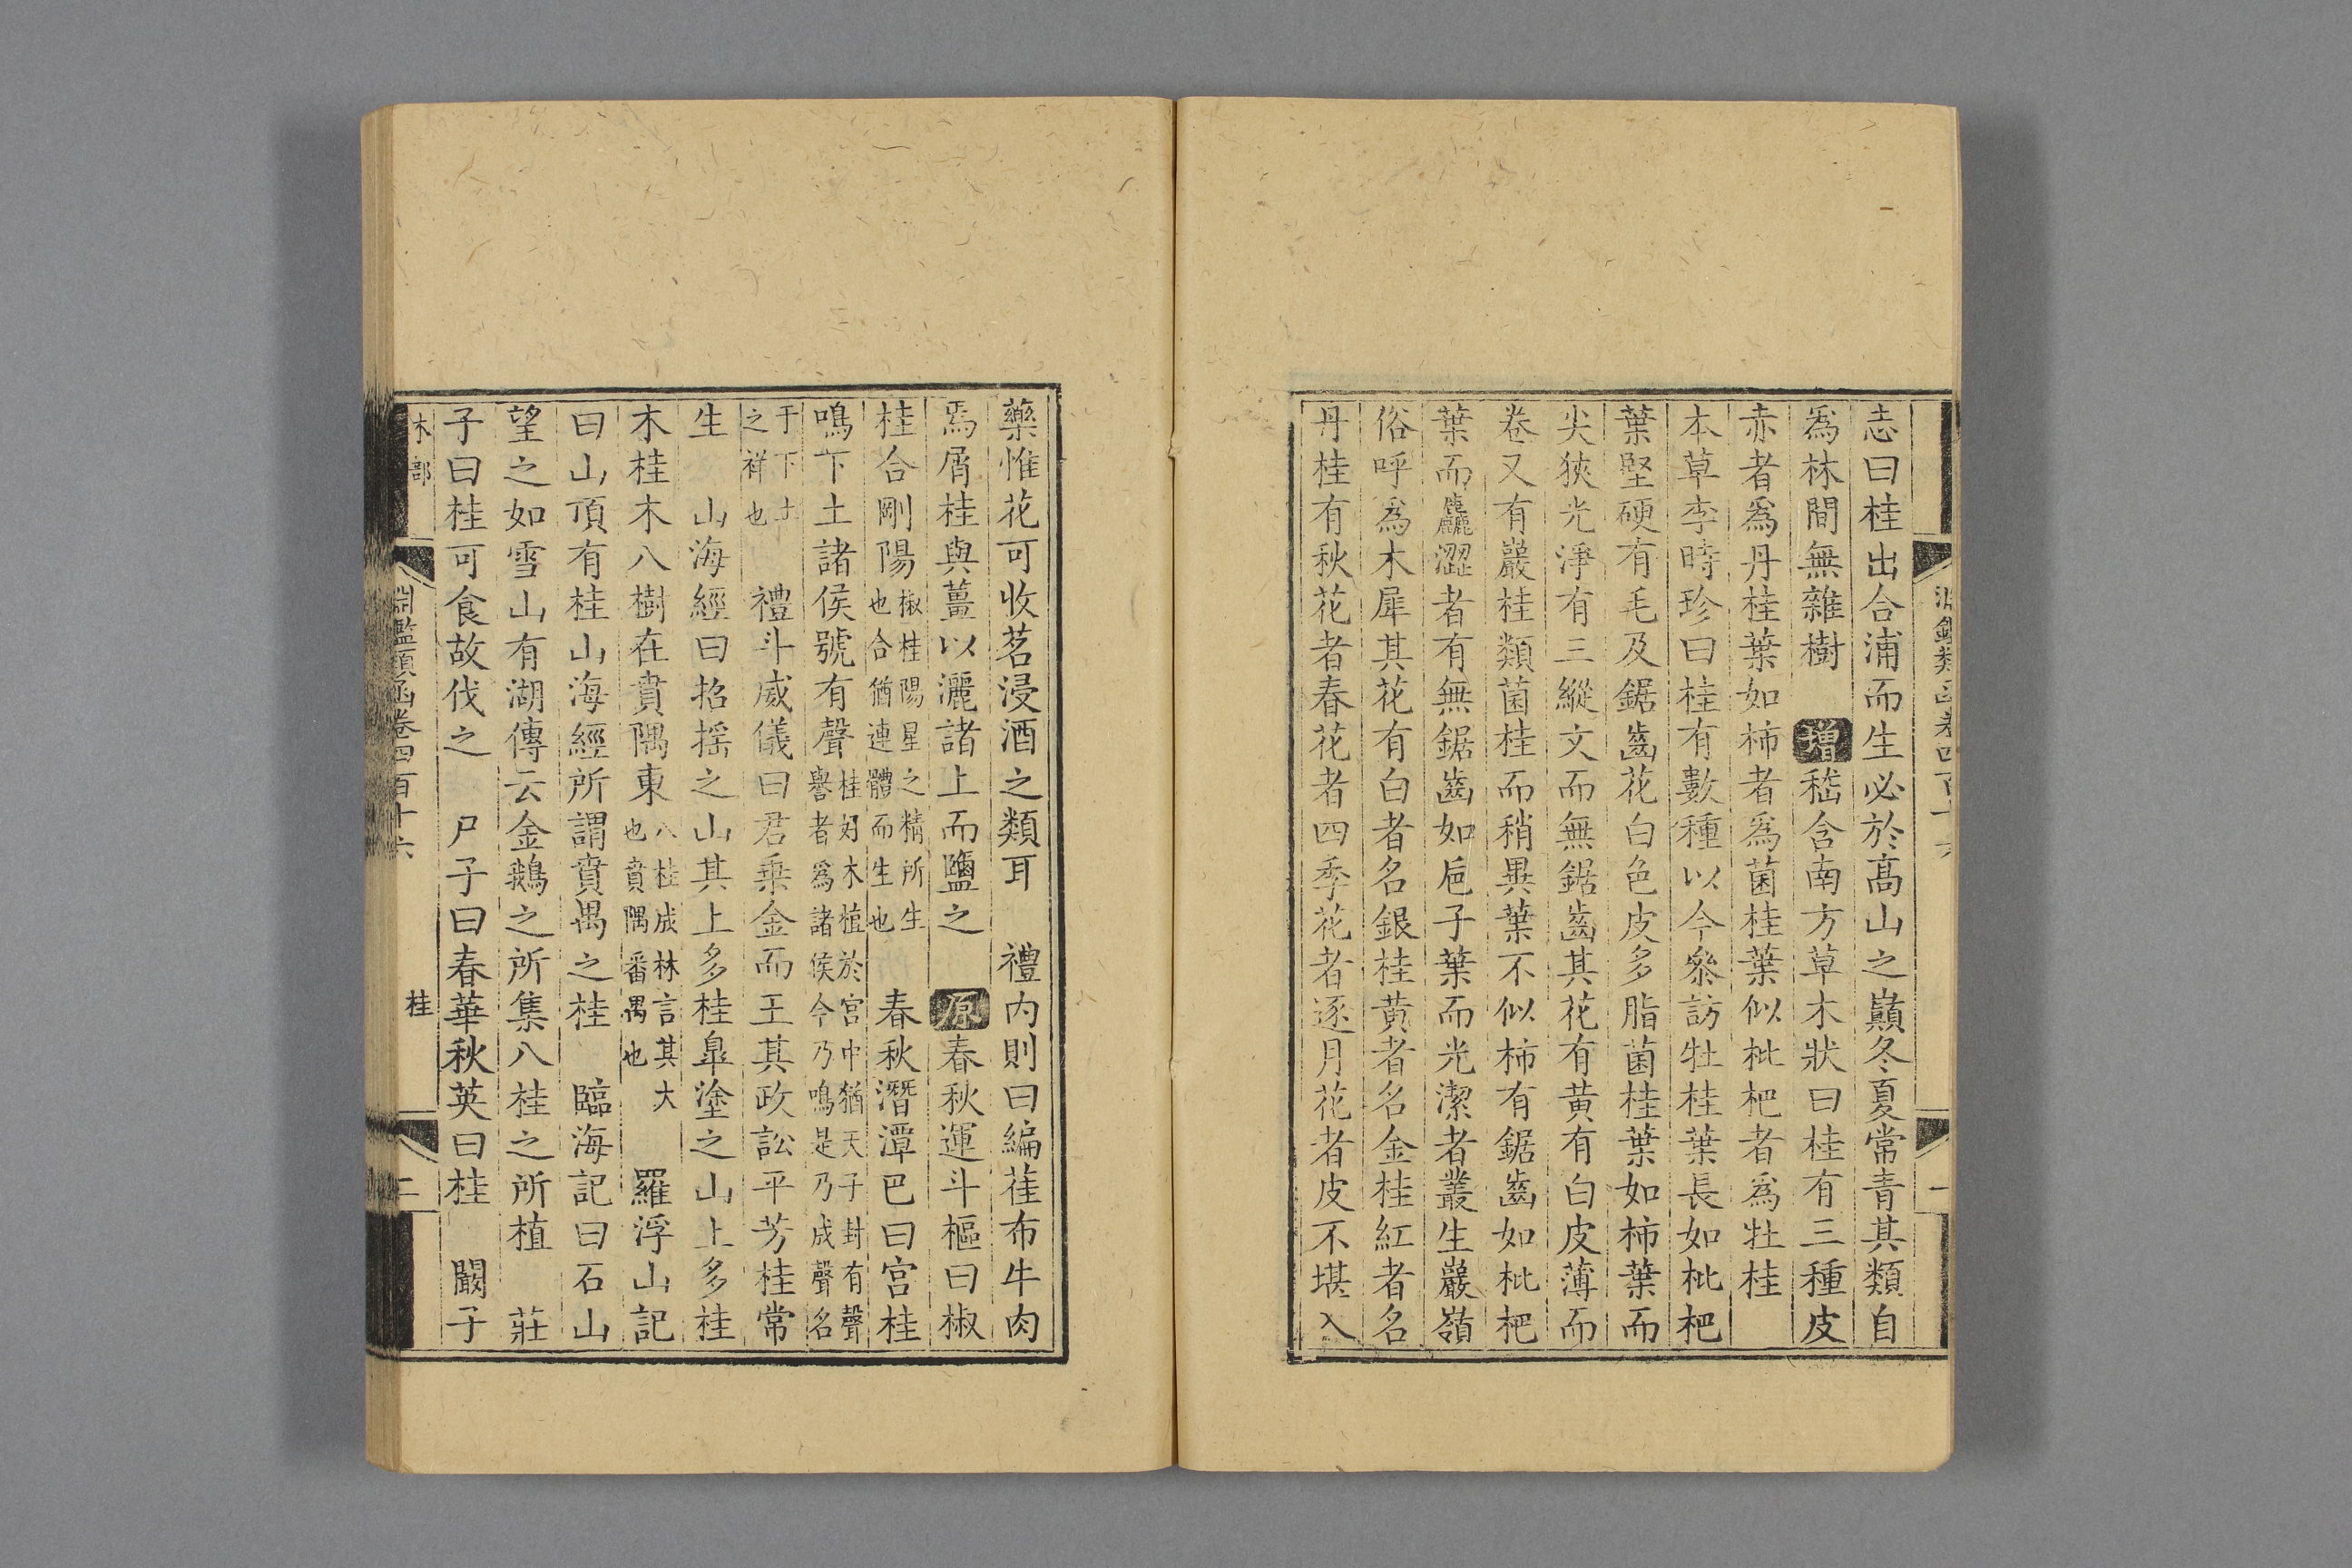 淵鑑類函卷四百十六
一
志曰桂出合浦而生必於高山之巔冬夏常青其類自
爲林間無雜樹　增嵇含南方草木狀曰桂有三種皮
赤者爲丹桂葉如柿者爲菌桂葉似枇杷者爲牡桂
本草李時珍曰桂有數種以今參訪牡桂葉長如枇杷
葉堅硬有毛及鋸齒花白色皮多脂菌桂葉如柿葉而
尖狹光淨有三縱文而無鋸齒其花有黄有白皮薄而
卷又有巖桂類菌桂而稍異葉不似柿有鋸齒如枇杷
葉而麤澀者有無鋸齒如巵子葉而光潔者叢生巖嶺
俗呼爲木犀其花有白者名銀桂黄者名金桂紅者名
丹桂有秋花者春花者四季花者逐月花者皮不堪入
藥惟花可收茗浸酒之類耳　禮内則曰編萑布牛肉
焉屑桂與薑以灑諸上而鹽之　原春秋運斗樞曰椒
桂合剛陽椒桂陽星之精所生也合猶連體而生也　春秋潛潭巴曰宫桂
鳴下土諸侯號有聲桂好木植於宫中猶天子封有聲譽者爲諸侯今乃鳴是乃成聲名
于下土之祥也　禮斗威儀曰君乘金而王其政訟平芳桂常
生　山海經曰招摇之山其上多桂臯塗之山上多桂
木桂木八樹在賁隅東八桂成林言其大也賁隅番禺也　羅浮山記
曰山頂有桂山海經所謂賁禺之桂　臨海記曰石山
望之如雪山有湖傳云金鵝之所集八桂之所植　莊
子曰桂可食故伐之　尸子曰春華秋英曰桂　闞子
木部
淵鑑類函卷四百十六
桂
二